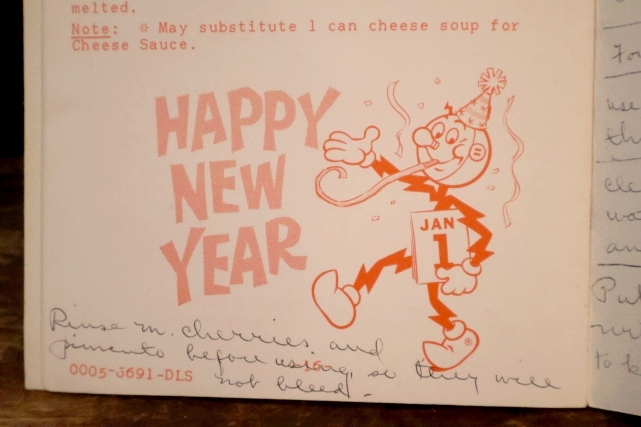 melted.
Note: * May substitute 1 can cheese soup for
Cheese Sauce.
HAPPY
NEW
YEAR
JAN
1
®
Rinse m. cherries and
pimento before using, so they will
not bleed.
16
0005-J691-DLS
For
use
th
cle
wa
an
Pul
to b